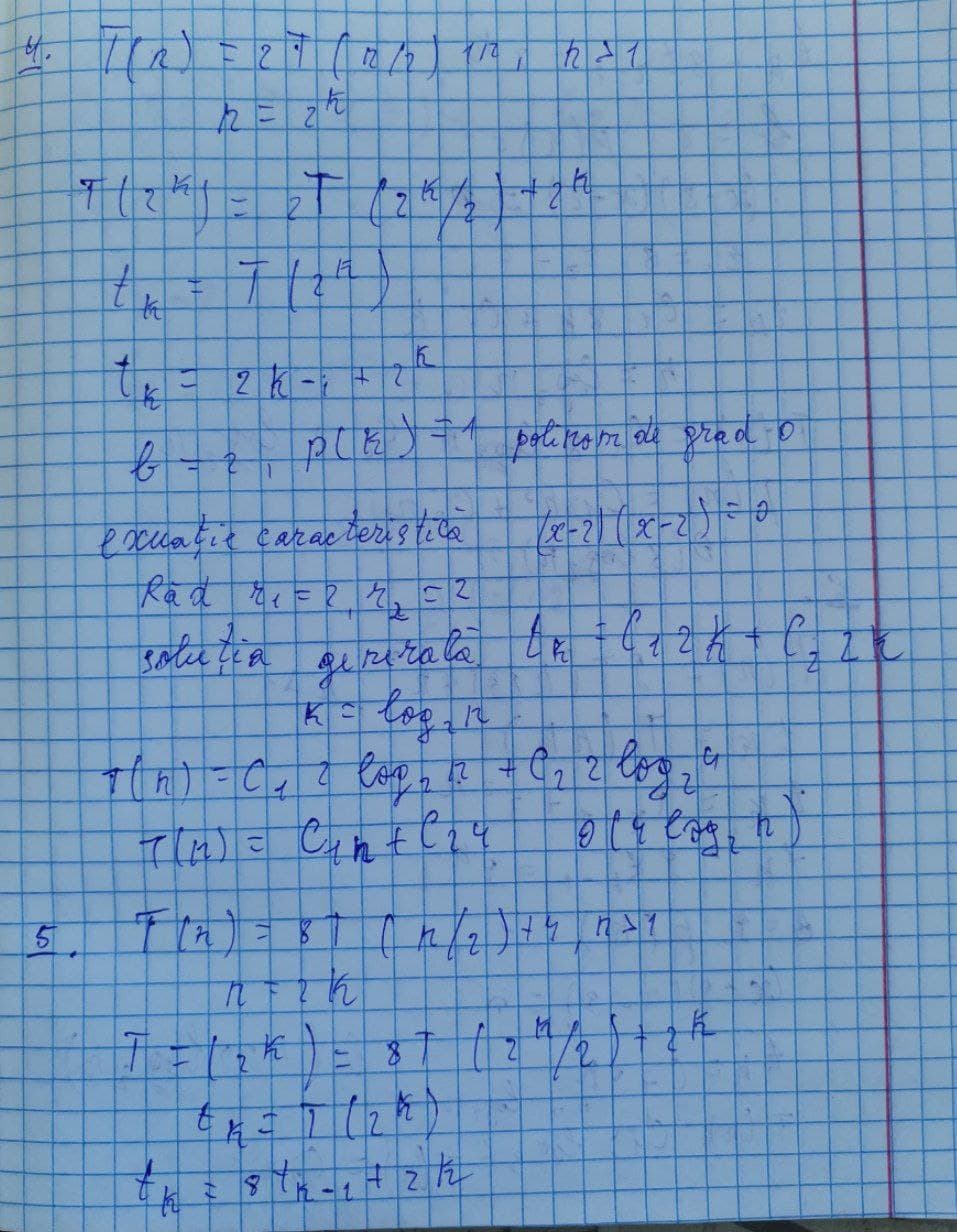 4. T(n) = 2T(n/2) + n, n > 1
n = 2^k
T(2^k) = 2T (2^k/2) + 2^k
t_k = T(2^k)
t_k = 2k-1 + 2^k
b = 2, p(k) = 1 polinom de grad 0
exuație caracteristică (x-2)(x-2) = 0
Răd r_1 = 2, r_2 = 2
soluția generală t_k = C_1 2k + C_2 2k
k = log_2 n
T(n) = C_1 2 log_2 n + C_2 2 log_2 4
T(n) = C_1n + C_2 4 0(4 log_2 n)
5. T(n) = 8T (n/2) + 4, n > 1
n = 2k
T = (2^k) = 8T (2^k/2) + 2^k
t_k = T(2^k)
t_k = 8t_k-1 + 2k